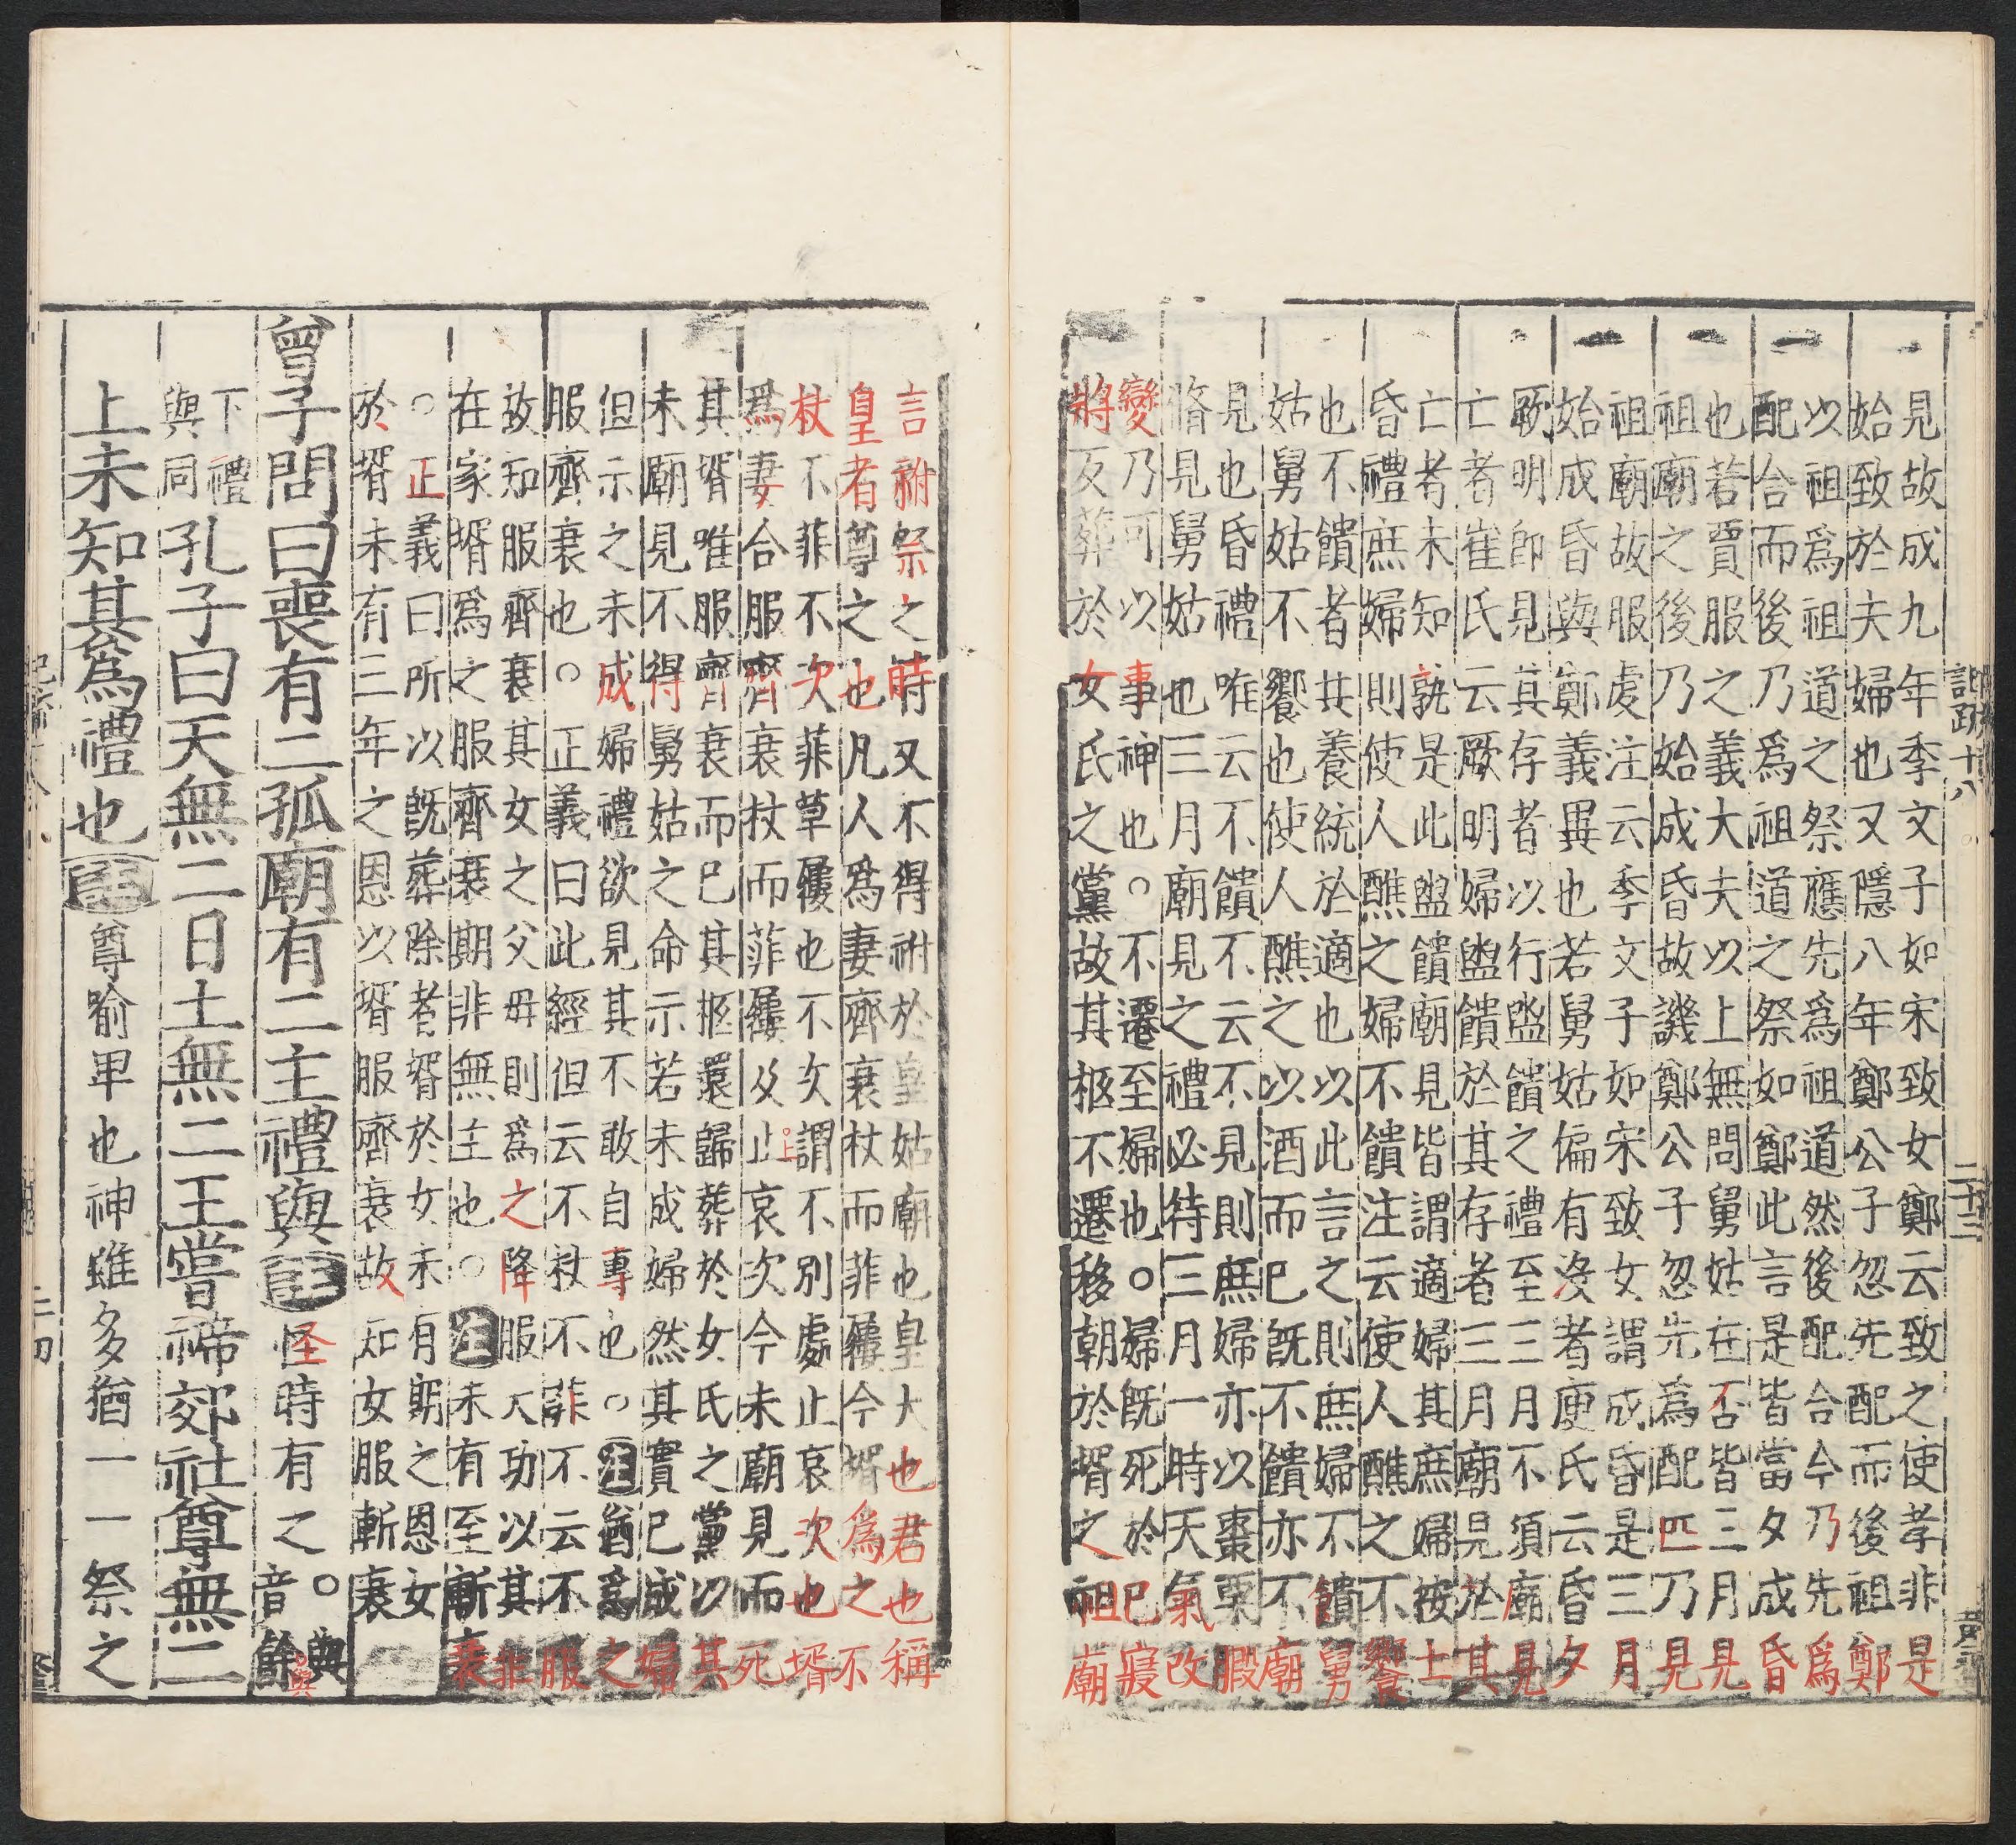 見故成九年季文子如宋致女鄭云致之使孝非是
始致於夫婦也又隱八年鄭公子忽先配而後祖鄭
以祖爲祖道之祭應先爲祖道然後配合今乃先爲
配合而後乃爲祖道之祭如鄭此言是皆當夕成昏
也若賈服之義大夫以上無問舅姑在否皆三月見
祖廟之後乃始成昏故譏鄭公子忽先爲配匹乃見
祖廟故服處注云季文子如宋致女謂成昏是三月
始成昏與鄭義異也若舅姑偏有沒者庾氏云昏夕
厥明即見其存者以行盥饋之禮至三月不須廟見
亡者崔氏云厥明婦盥饋於其存者三月廟見於其
亡者未知孰是此盥饋廟見皆謂適婦其庶婦按士
昏禮庶婦則使人醮之婦不饋注云使人醮之不饗
也不饋者共養統於適也以此言之則庶婦不饋舅
姑舅姑不饗也使人醮之以酒而已旣不饋亦不廟
見也昏禮唯云不饋不云不見則庶婦亦以棗栗腶
脩見舅姑也三月廟見之禮必待三月一時天氣改
變乃可以事神也○不遷至婦也○婦旣死於已寢
將反葬於女氏之黨故其柩不遷移朝於壻之祖廟
記疏十八
二十三
言祔祭之時又不得祔於皇姑廟也皇大也君也稱
皇者尊之也凡人爲妻齊衰杖而菲屨今壻爲之不
杖不菲不次菲草屨也不次謂不別處止哀次也壻
爲妻合服齊衰杖而菲屨及止哀次今未廟見而死
其壻唯服齊衰而已其柩還歸葬於女氏之黨以其
未廟見不得舅姑之命示若未成婦然其實已成婦
但示之未成婦禮欲見其不敢自專也○注猶爲之
服齊衰也○正義曰此經但云不杖不菲不云不服
故知服齊衰其女之父母則爲之降服大功以其非
在家壻爲之服齊衰期非無主也○注未有至斬衰
○正義曰所以旣葬除者壻於女未有期之恩女
於壻未有三年之恩以壻服齊衰故知女服斬衰
曾子問曰喪有二孤廟有二主禮與注怪時有之○與音餘
下禮與同孔子曰天無二日土無二王嘗禘郊社尊無二
上未知其爲禮也注尊喻卑也神雖多猶一一祭之